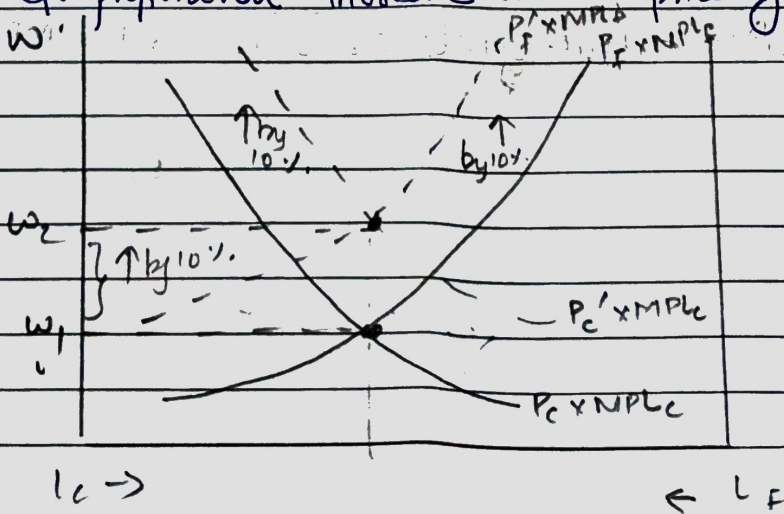 W
P_F' x MPL
P_F x MPL_F
↑ by
10 %.
↑
by 10%.
w₂
↑ by 10 %.
P_c' x MPL_c
w₁
P_c x MPL_c
L_c →
← L_F